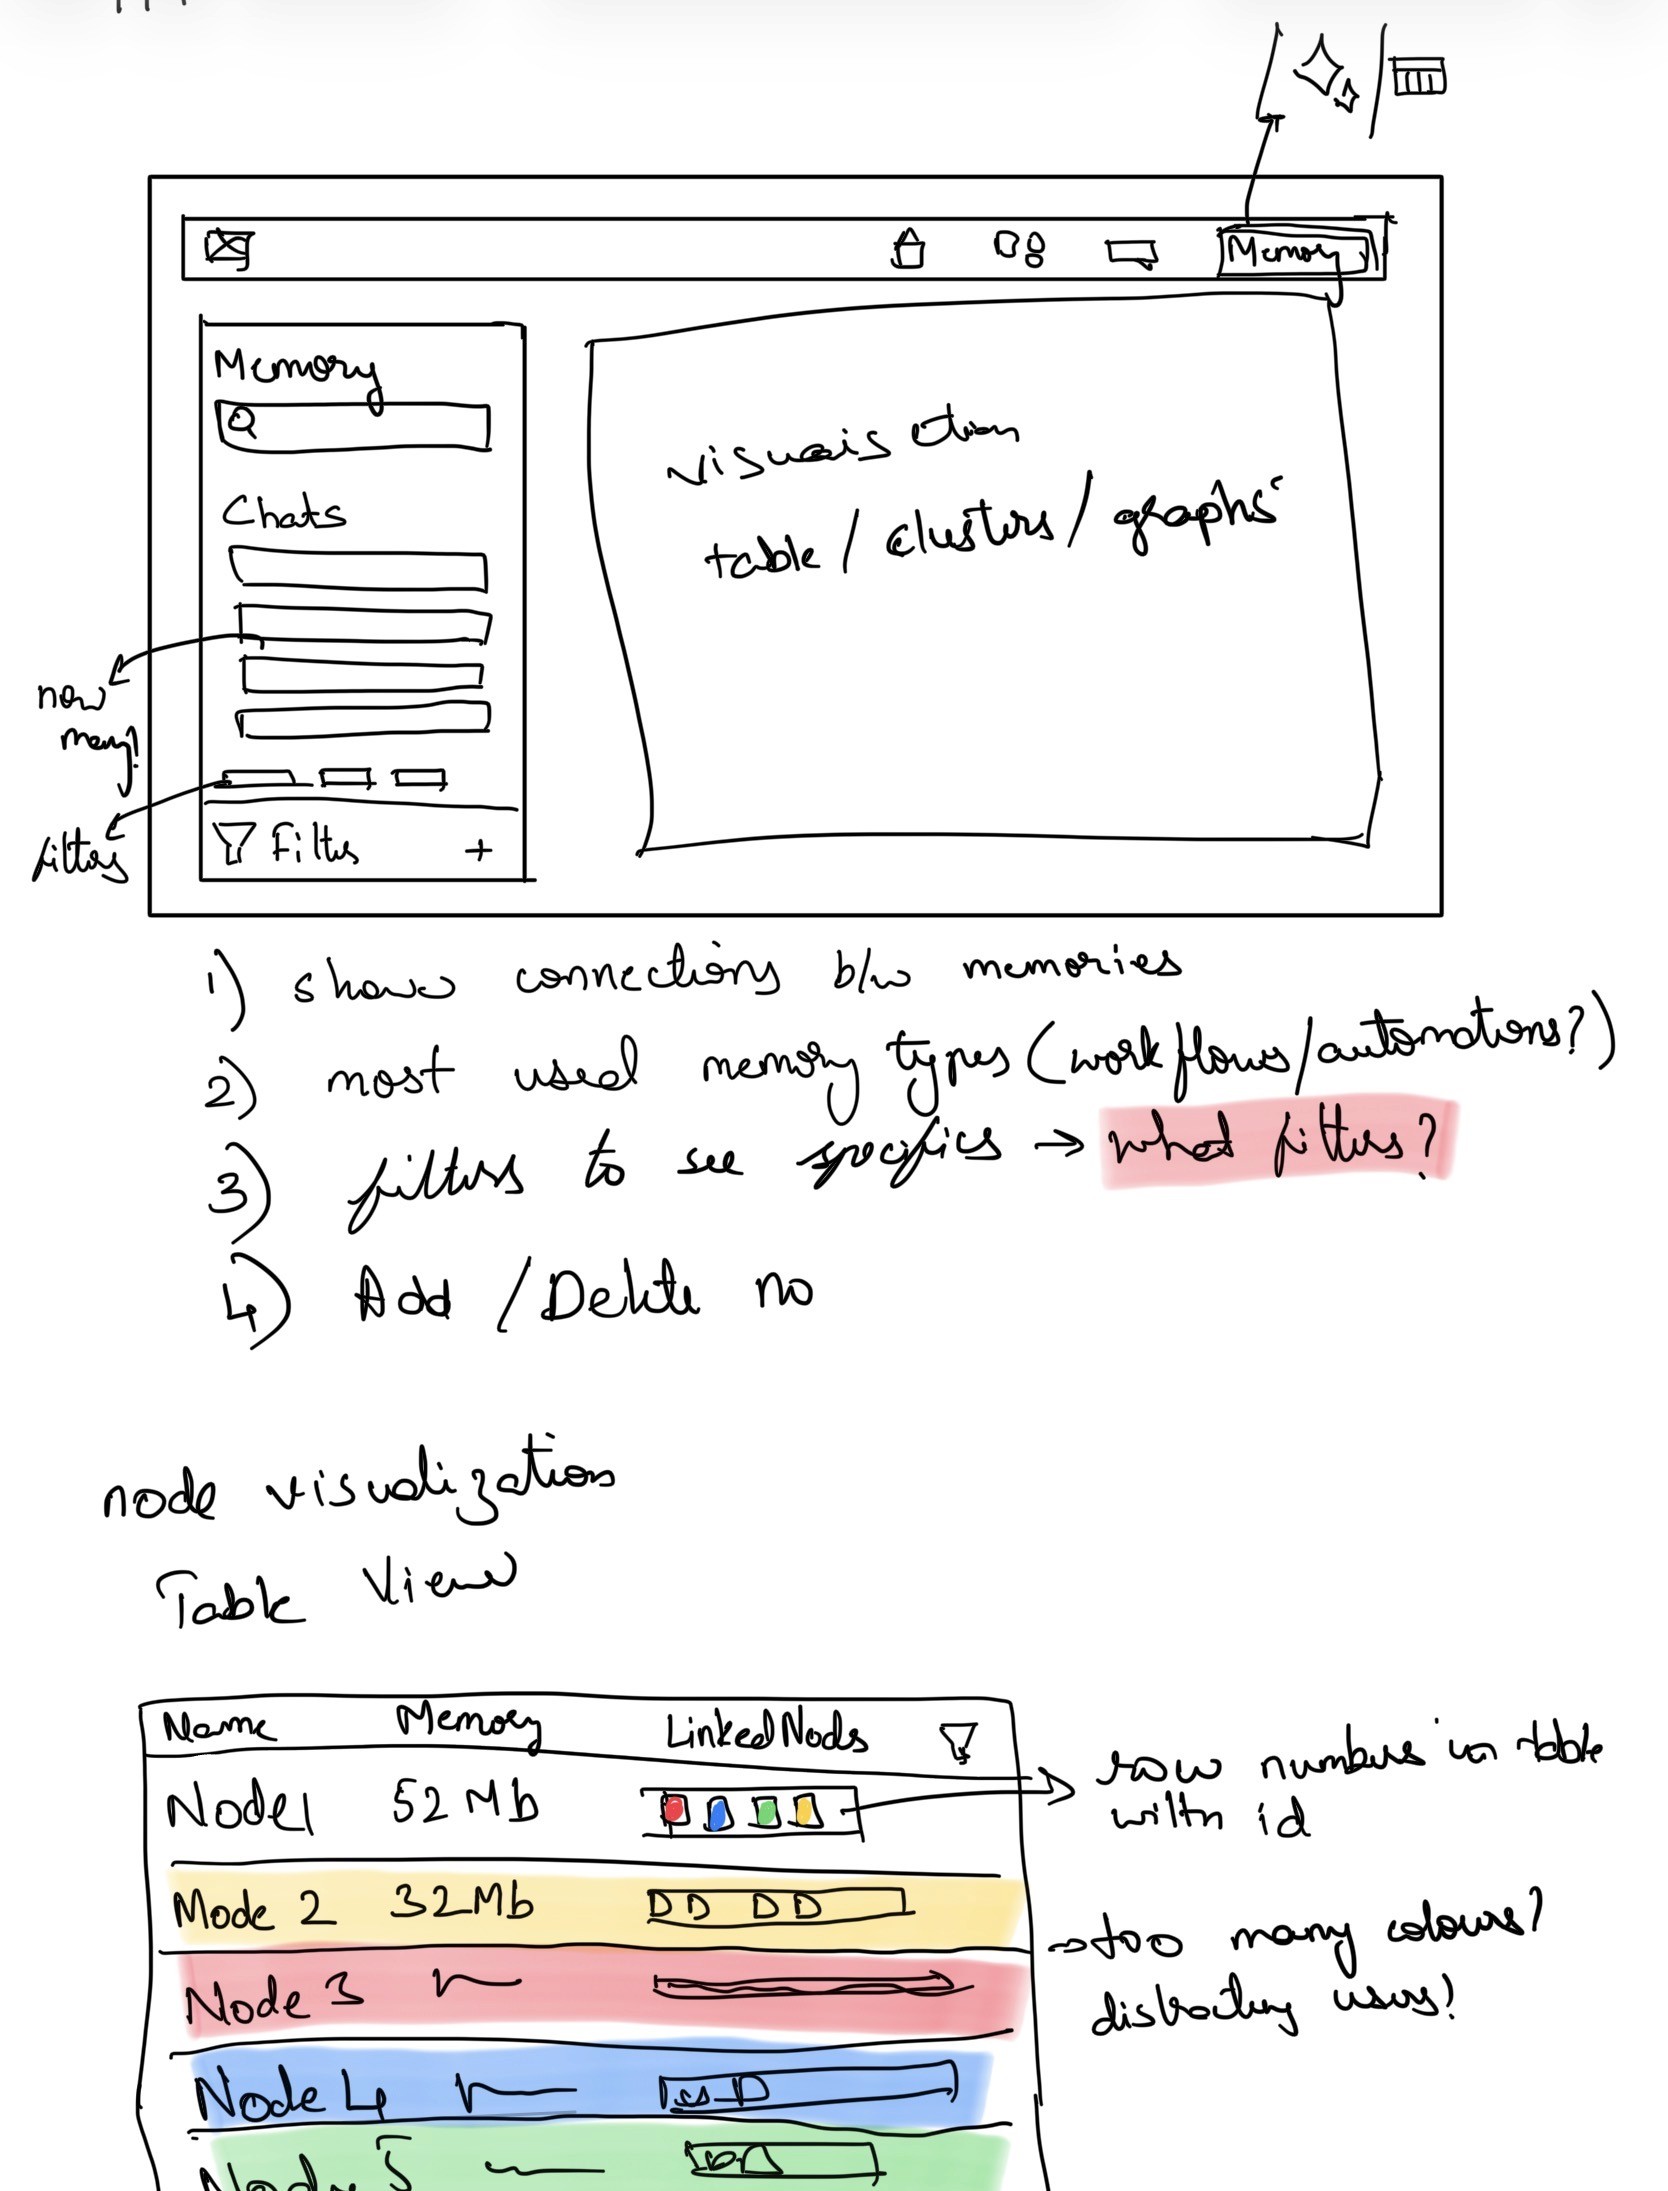 Memory
Memory
Q
visuaisation
table / clusters / graphs
Chats
how
many?
filters
Filters +
1) show connections b/w memories
2) most used memory types (workflows/automations?)
3) filters to see specifics → what filters?
4) Add / Delete no
node visualization
Table View
Name Memory Linked Nodes
Node 1 52 Mb
→ row numbers in table
with id
Node 2 32 Mb
→ too many colours?
distracting users!
Node 3
Node 4
Node 5